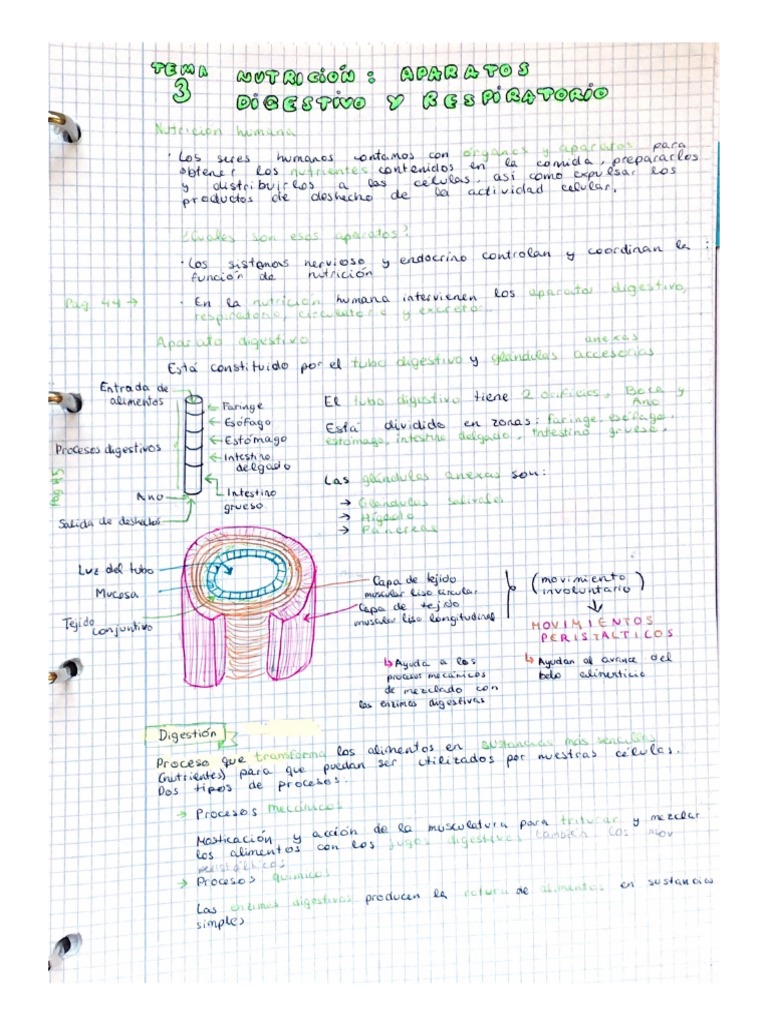 TEMA 3
NUTRICIÓN: APARATOS
DIGESTIVO Y RESPIRATORIO
Nutrición humana
· Los seres humanos contamos con órganos y aparatos para
obtener los nutrientes contenidos en la comida, prepararlos
y distribuirlos a las células, así como expulsar los
productos de deshecho de la actividad celular.
¿Cuáles son esos aparatos?
· Los sistemas nervioso y endocrino controlan y coordinan la :
función de nutrición
Pág 44 →
· En la nutrición humana intervienen los aparatos digestivo,
respiratorio, circulatorio y excretor.
Aparato digestivo
anexas
Está constituido por el tubo digestivo y glándulas accesorias
Entrada de
alimentos
Faringe
Esófago
Estómago
Intestino
delgado
Intestino
grueso
Procesos digestivos
Ano
Salida de deshechos
Pág 45
El tubo digestivo tiene 2 orificios, Boca y
Ano
Está dividido en zonas: faringe, esófago,
estómago, intestino delgado, intestino grueso.
Las glándulas anexas son:
→ Glándulas salivales
→ Hígado
→ Páncreas
Luz del tubo
Mucosa
Tejido
conjuntivo
Capa de tejido
muscular liso circular
Capa de tejido
muscular liso longitudinal
(movimiento
involuntario)
MOVIMIENTOS
PERISTÁLTICOS
↳ Ayuda a los
procesos mecánicos
de mezclado con
las enzimas digestivas
↳ Ayudan al avance del
bolo alimenticio
Digestión
Proceso que transforma los alimentos en sustancias más sencillas
(nutrientes) para que puedan ser utilizados por nuestras células.
Dos tipos de procesos.
→ Procesos mecánicos
Masticación y acción de la musculatura para triturar y mezclar
los alimentos con los jugos digestivos también los mov
peristálticos
→ Procesos químicos
Las enzimas digestivas producen la rotura de alimentos en sustancias
simples